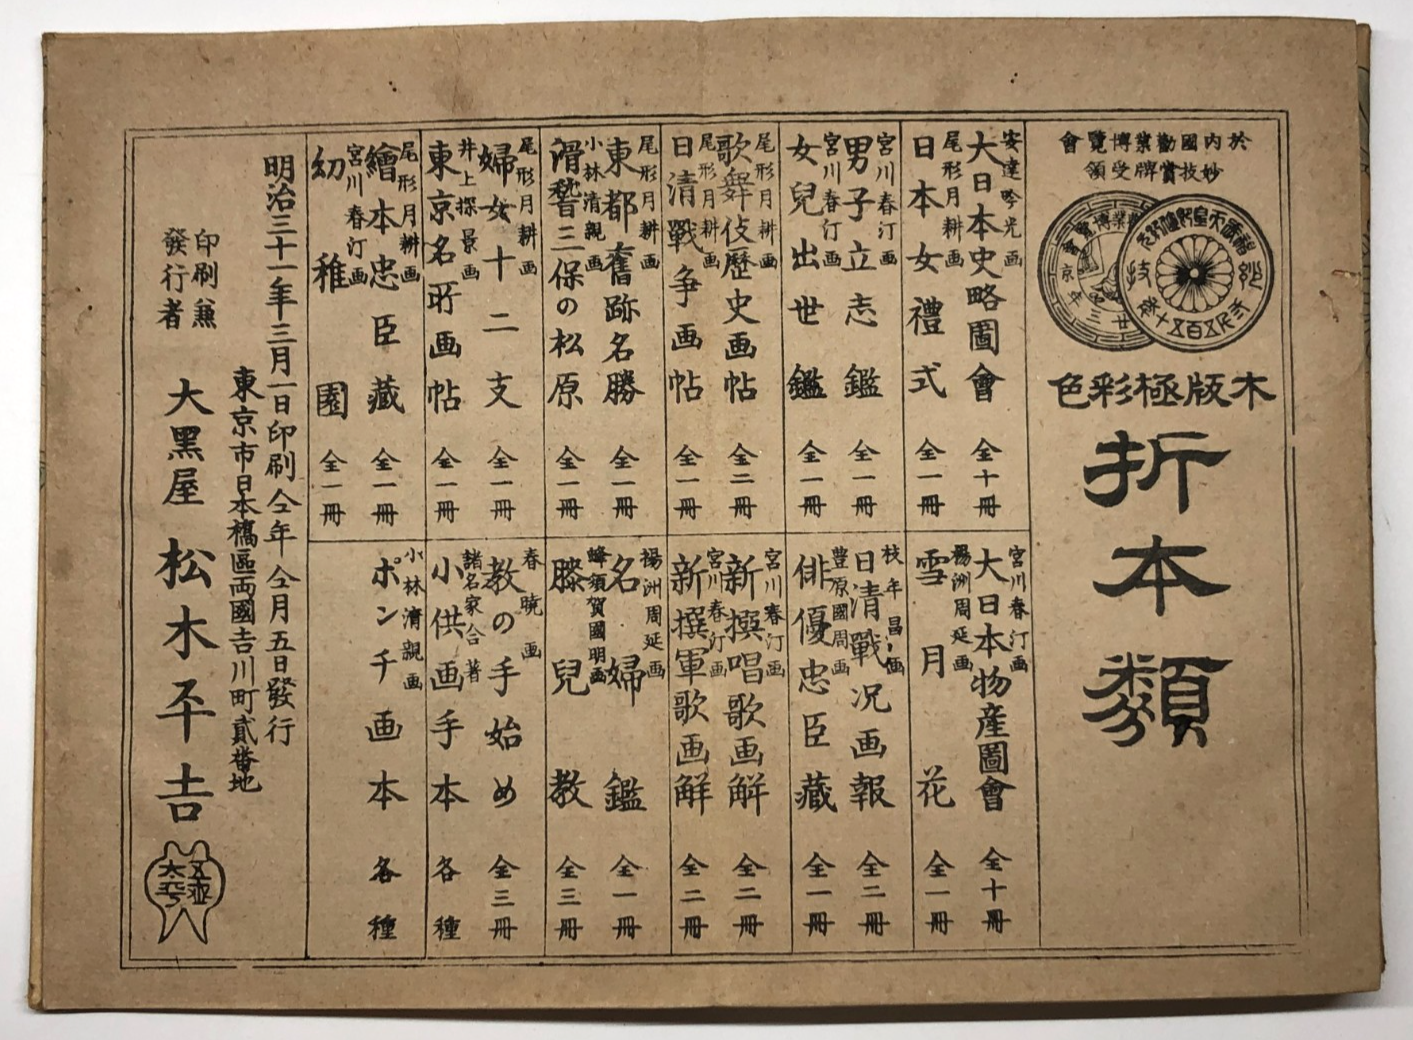 於内國勸業博覽會
妙技賞牌受領
木版極彩色
折本類
安達吟光画
大日本史略圖會 全十冊
尾形月耕画
日本女禮式 全一冊
宮川春汀画
男子立志鑑 全一冊
宮川春汀画
女兒出世鑑 全一冊
尾形月耕画
歌舞伎歷史画帖 全二冊
尾形月耕画
日清戰争画帖 全一冊
尾形月耕画
東都舊跡名勝 全一冊
小林清親画
滑稽三保の松原 全一冊
尾形月耕画
婦女十二支 全一冊
井上探景画
東京名所画帖 全一冊
尾形月耕画
繪本忠臣藏 全一冊
宮川春汀画
幼稚園 全一冊
宮川春汀画
大日本物産圖會 全十冊
楊洲周延画
雪月花 全一冊
枝年昌画
日清戰况画報 全二冊
豊原國周画
俳優忠臣藏 全一冊
宮川春汀画
新撰唱歌画解 全二冊
宮川春汀画
新撰軍歌画解 全二冊
楊洲周延画
名婦鑑 全一冊
蜂須賀國明画
膝兒教 全三冊
春曉画
教の手始め 全三冊
諸名家合著
小供画手本 各種
小林清親画
ポンチ画本 各種
明治三十一年三月一日印刷仝年仝月五日發行
東京市日本橋區両國吉川町貳番地
印刷兼
發行者
大黑屋 松木平吉